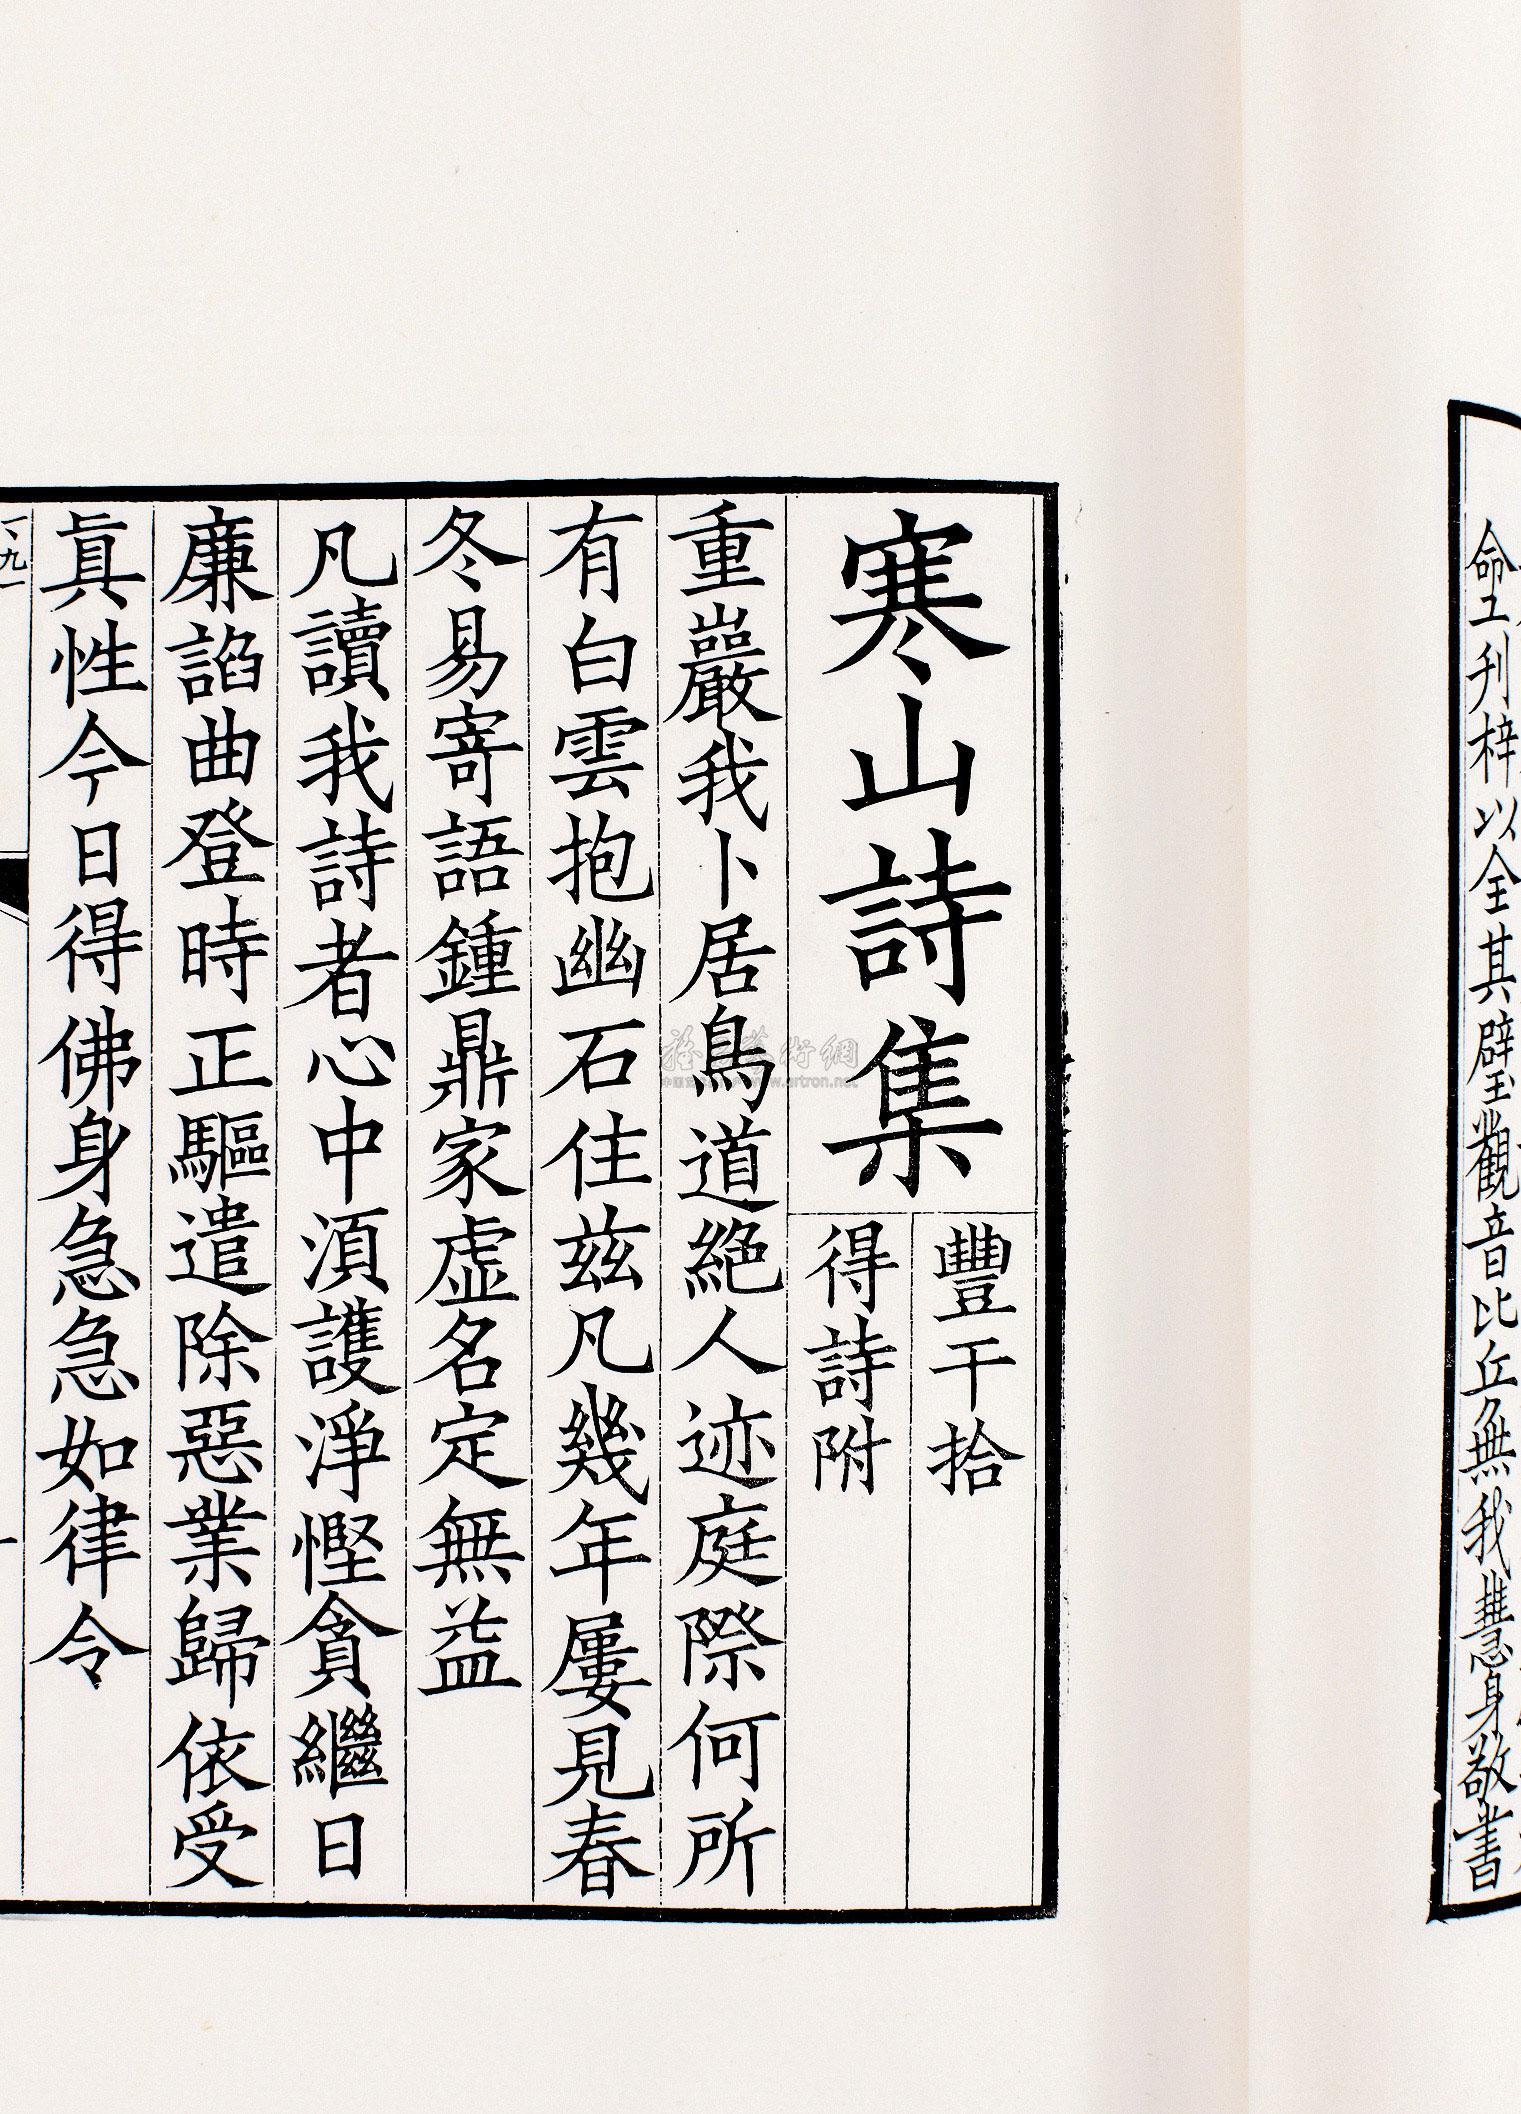 命工刋梓以全其璧觀音比丘無我慧身敬書
寒山詩集
豐干拾
得詩附
重巖我卜居鳥道絕人迹庭際何所
有白雲抱幽石住茲凡幾年屢見春
冬易寄語鍾鼎家虛名定無益
凡讀我詩者心中湏護淨慳貪繼日
廉諂曲登時正驅遣除惡業歸依受
眞性今日得佛身急急如律令
www.artron.net